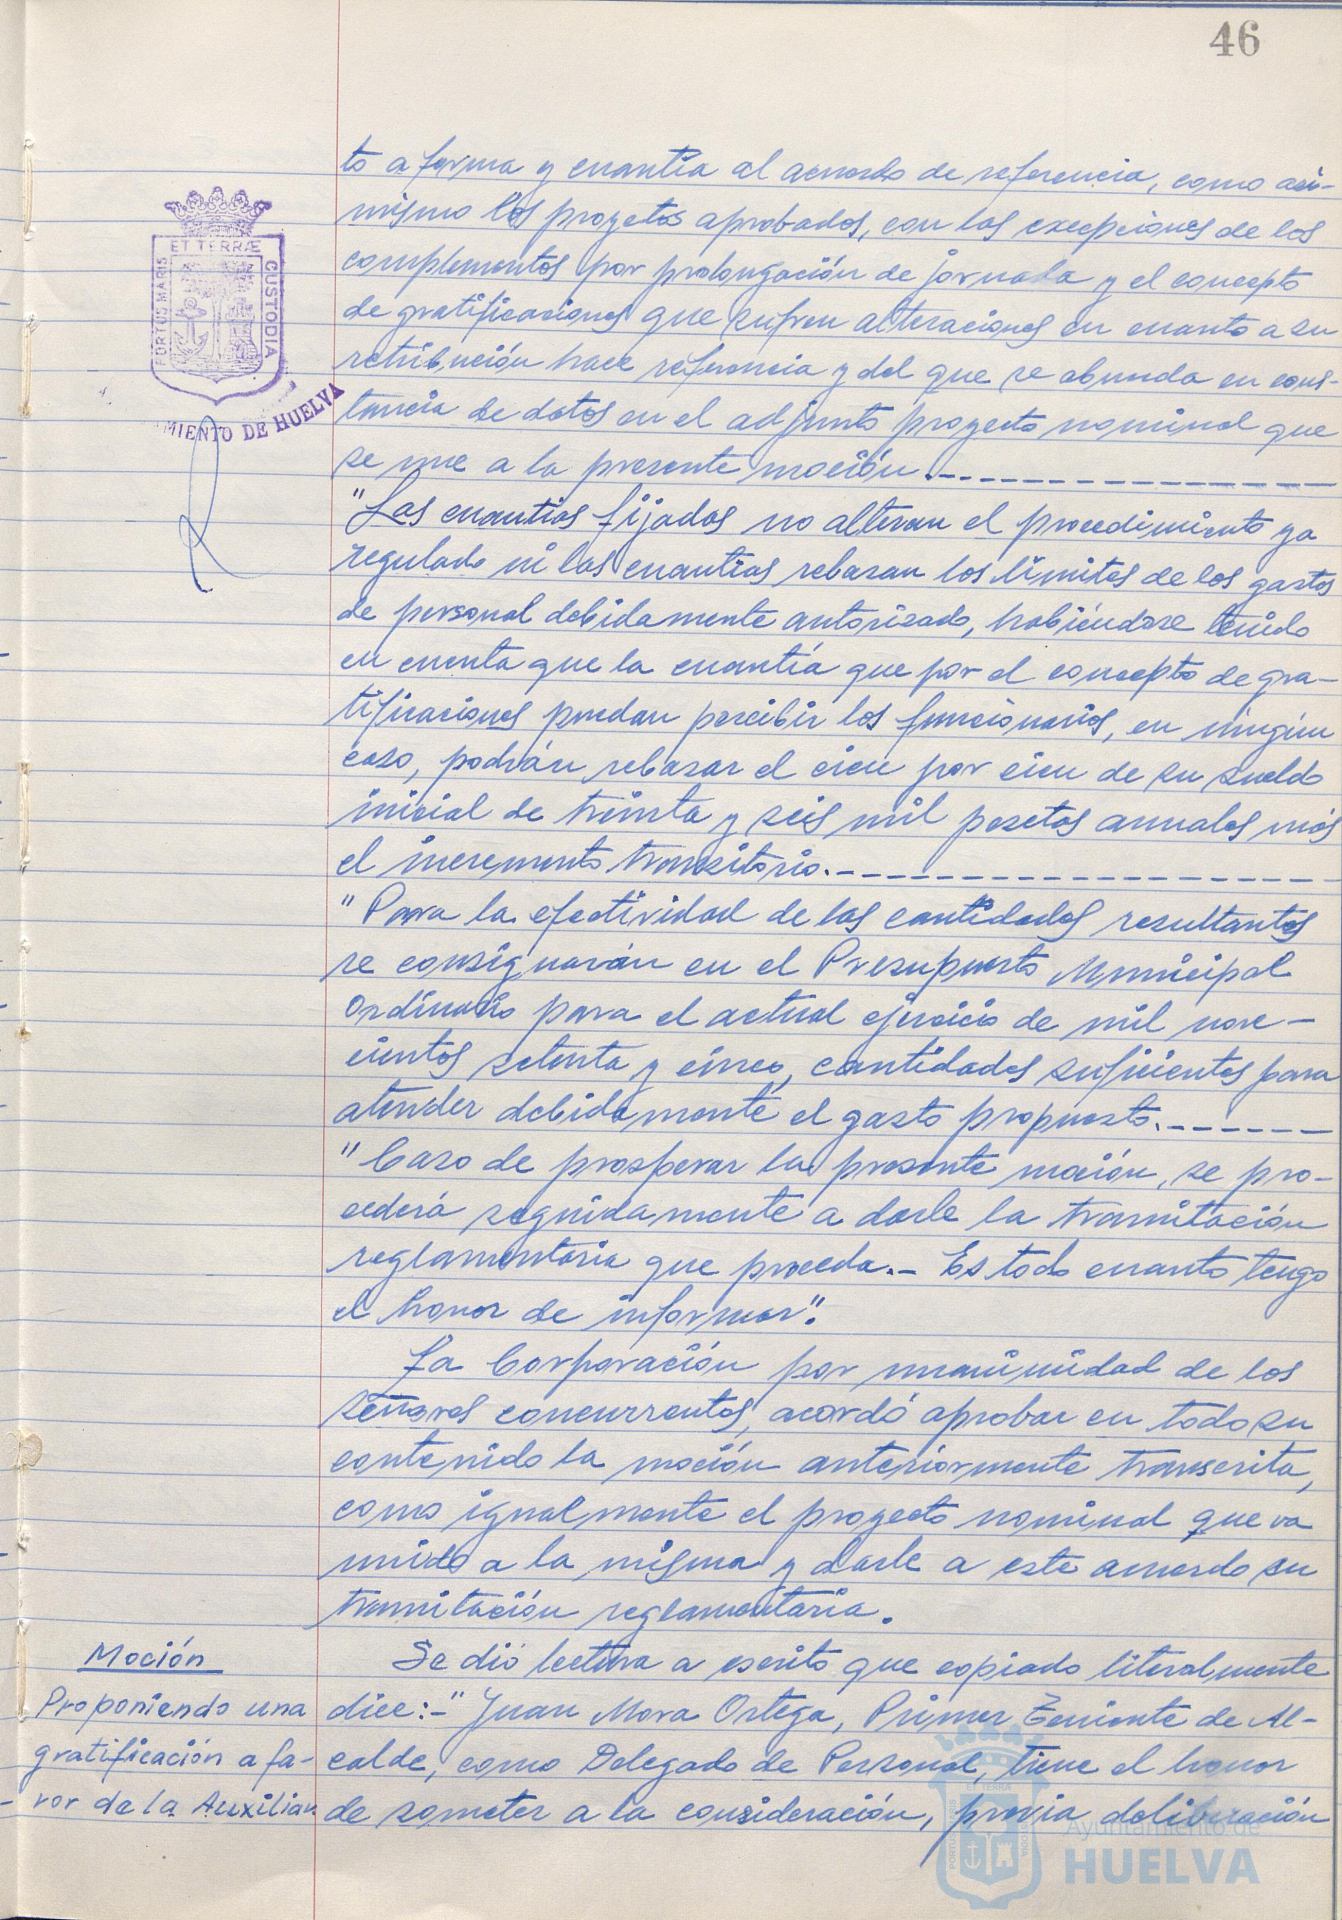 46
to a forma y cuantía al acuerdo de referencia, como asi-
mismo los proyetos aprobados, con las excepciones de los
complementos por prolongación de jornada y el concepto
de gratificaciones que sufren alteraciones en cuanto a su
retribución hace referencia y del que se abunda en cons-
tancia de datos en el adjunto proyecto nominal que
se une a la presente moción.
ET TERRÆ
PORTUS MARIS
CUSTODIA
MIENTO DE HUELVA
"Las cuantías fijadas no alteran el procedimiento ya
regulado ni las cuantías rebasan los límites de los gastos
de personal debidamente autorizado, habiéndose tenido
en cuenta que la cuantía que por el concepto de gra-
tificaciones puedan percibir los funcionarios, en ningún
caso, podrán rebasar el cien por cien de su sueldo
inicial de treinta y seis mil pesetas anuales más
el incremento transitorio.-
"Para la efectividad de las cantidades resultantes
se consignarán en el Presupuesto Municipal
Ordinario para el actual ejercicio de mil nove-
cientos setenta y cinco, cantidades suficientes para
atender debidamente el gasto propuesto.
"Caso de prosperar la presente moción, se pro-
cederá seguidamente a darle la tramitación
reglamentaria que proceda.- Es todo cuanto tengo
el honor de informar".
La Corporación por unanimidad de los
señores concurrentes, acordó aprobar en todo su
contenido la moción anteriormente transcrita,
como igualmente el proyecto nominal que va
unido a la misma y darle a este acuerdo su
tramitación reglamentaria.
Moción
Proponiendo una
gratificación a fa-
vor de la Auxiliar
Se dió lectura a escrito que copiado literalmente
dice:-"Juan Mora Ortega, Primer Teniente de Al-
calde, como Delegado de Personal, tiene el honor
de someter a la consideración, previa deliberación
Ayuntamiento de
HUELVA